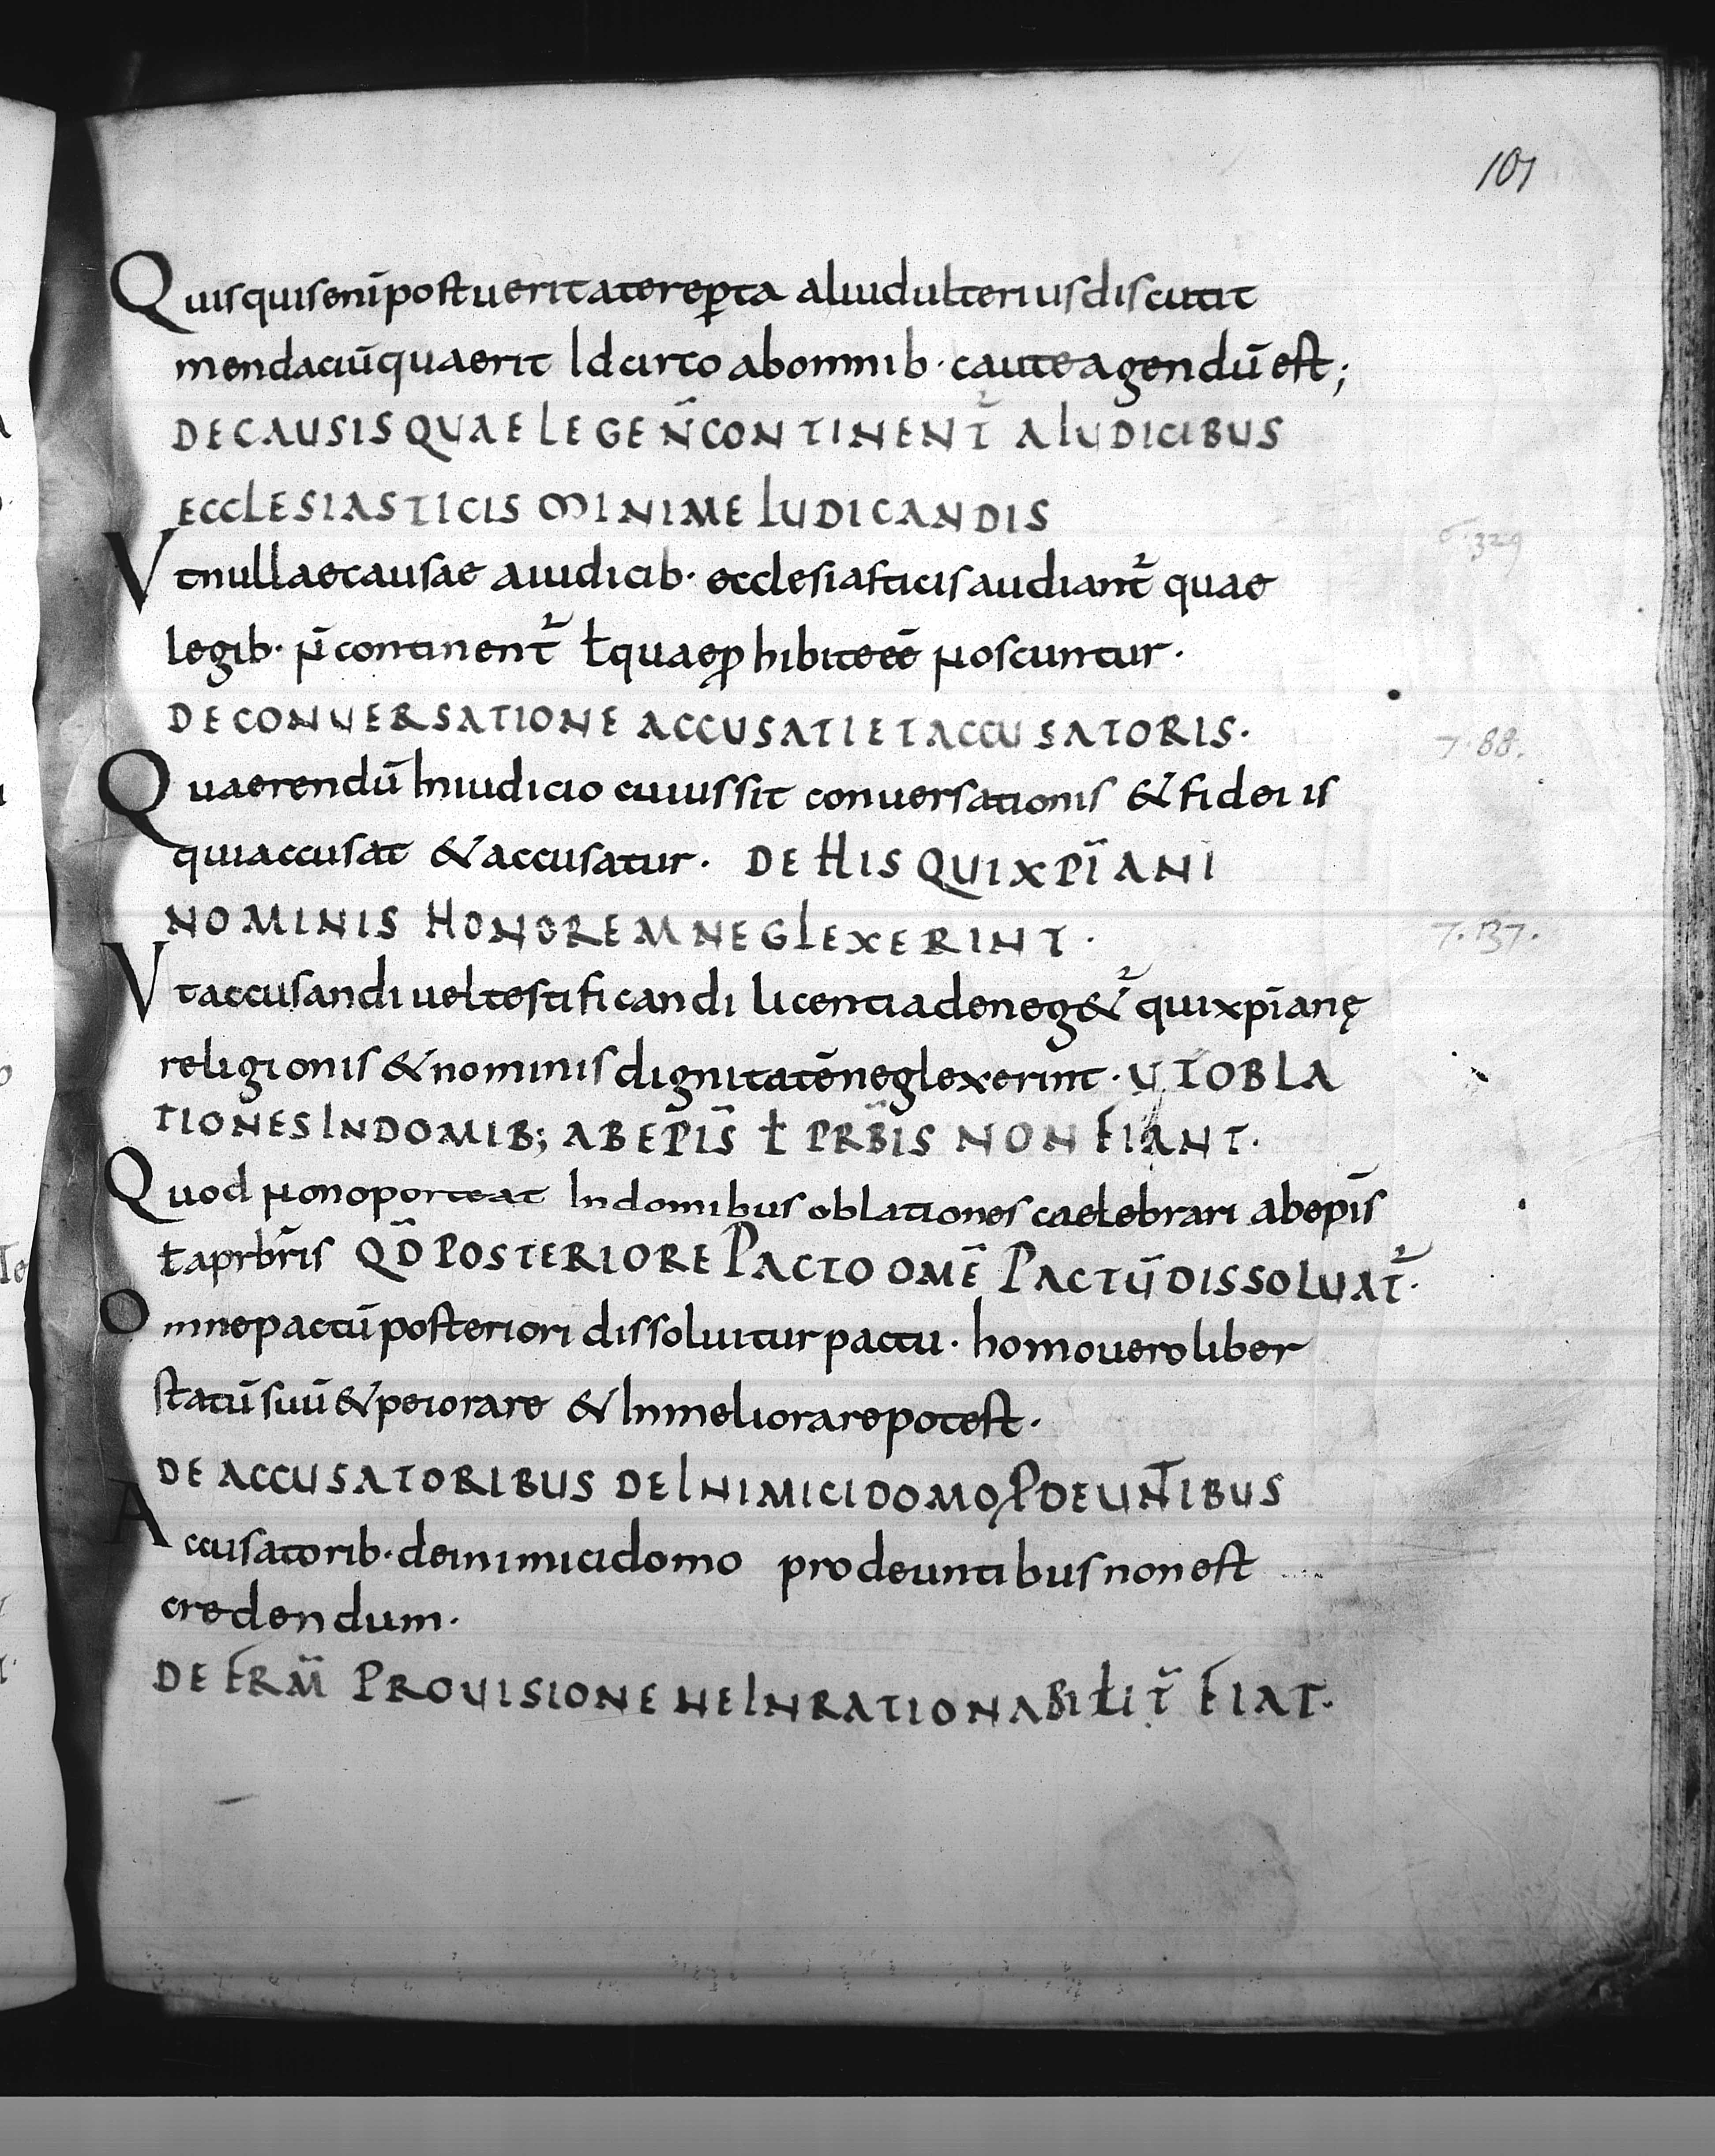 101
Quisquis enī post ueritate rep̱ta aliud ulterius discutit
mendaciū quaerit Idcirco ab omnib· caute agendū est;
DE CAUSIS QUAE LEGE N̄ CONTINENT̄ A IUDICIBUS
ECCLESIASTICIS MINIME IUDICANDIS
6.329
Vt nullae causae a iudicib· ecclesiasticis audiant᷑ quae
legib· n̄ continent᷑ ł quae ꝓhibite eē noscuntur·
DE CONUERSATIONE ACCUSATI ET ACCUSATORIS·
7.88.
Quaerendū In iudicio cuius sit conuersationis & fidei is
qui accusat & accusatur· DE HIS QUI XPĪANI
NOMINIS HONOREM NEGLEXERINT·
7.137.
Vt accusandi uel testificandi licentia deneg&᷑ qui xpīanę
religionis & nominis dignitatē neglexerint· UT OBLA
TIONES IN DOMIB; AB EPĪS ł PRB̄IS NON FIANT·
Quod non oporteat In domibus oblationes caelebrari ab epīs
ł a prb̄ris QD̄ POSTERIORE PACTO OMĒ PACTŪ DISSOLUAT᷑·
Omne pactū posteriori dissoluitur pactu· homo uero liber
statū suū & peiorare & In meliorare potest·
DE ACCUSATORIBUS DE INIMICI DOMO ꝒDEUNTIBUS
Accusatorib· de inimici domo prodeuntibus non est
credendum·
DE FRM̄ PROUISIONE NE INRATIONABIŁIT̄ FIAT·